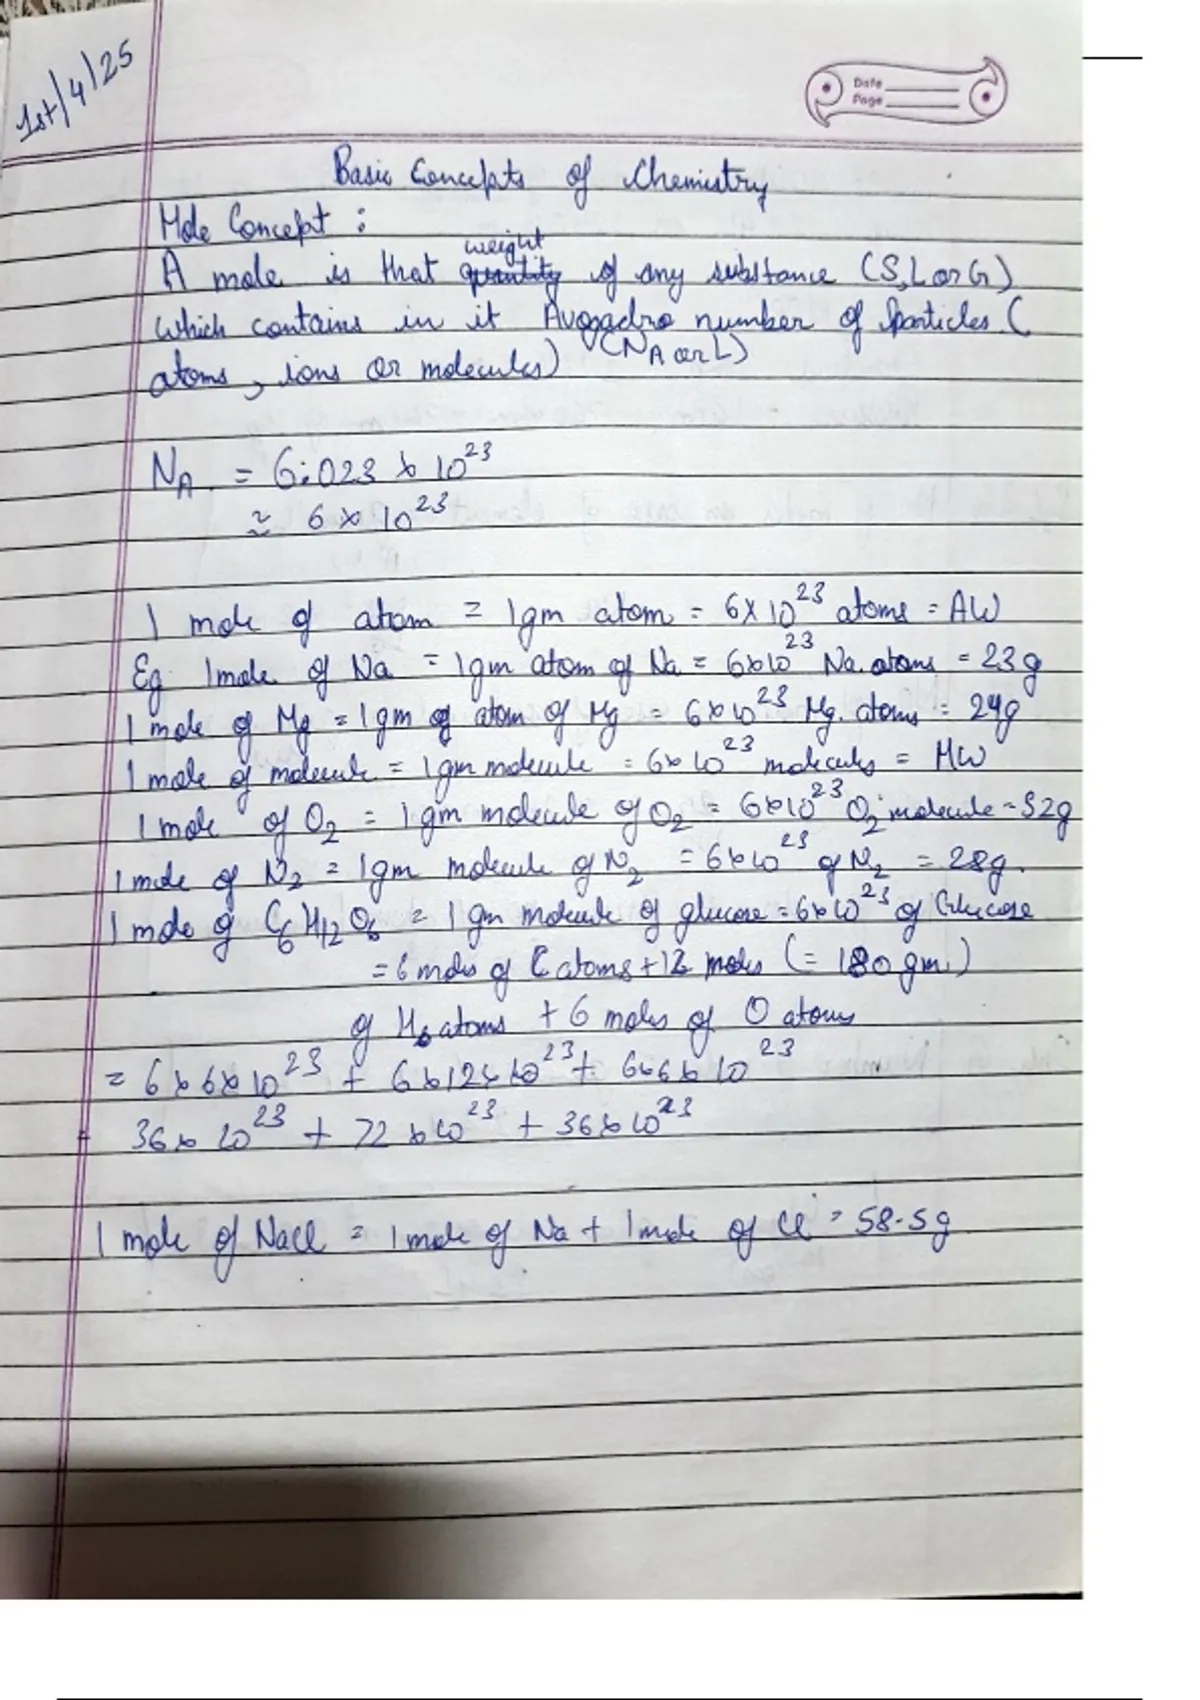 1st/4/25
Date
Page
Basic Concepts of Chemistry
Mole Concept :
weight
A mole is that quantity of any substance (S, L or G)
which contains in it Avogadro number of particles (
atoms, ions or molecules) (NA or L)
NA = 6.023 × 10²³
≈ 6 × 10²³
1 mole of atom = 1gm atom = 6×10²³ atoms = AW
Eg 1mole of Na = 1gm atom of Na = 6×10²³ Na. atoms = 23g
1 mole of Mg = 1gm of atom of Mg = 6×10²³ Mg. atoms = 24g
1 mole of molecule = 1gm molecule = 6×10²³ molecules = MW
1 mole of O₂ = 1gm molecule of O₂ = 6×10²³ O₂ molecule = 32g
1 mole of N₂ = 1gm molecule of N₂ = 6×10²³ of N₂ = 28g.
1 mole of C₆H₁₂O₆ = 1 gm molecule of glucose = 6×10²³ of Glucose
= 6 moles of C atoms + 12 moles (= 180 gm.)
of H atoms + 6 moles of O atoms
= 6×6×10²³ + 6×12×10²³ + 6×6×10²³
= 36×10²³ + 72×10²³ + 36×10²³
1 mole of NaCl = 1 mole of Na + 1 mole of Cl = 58.5g